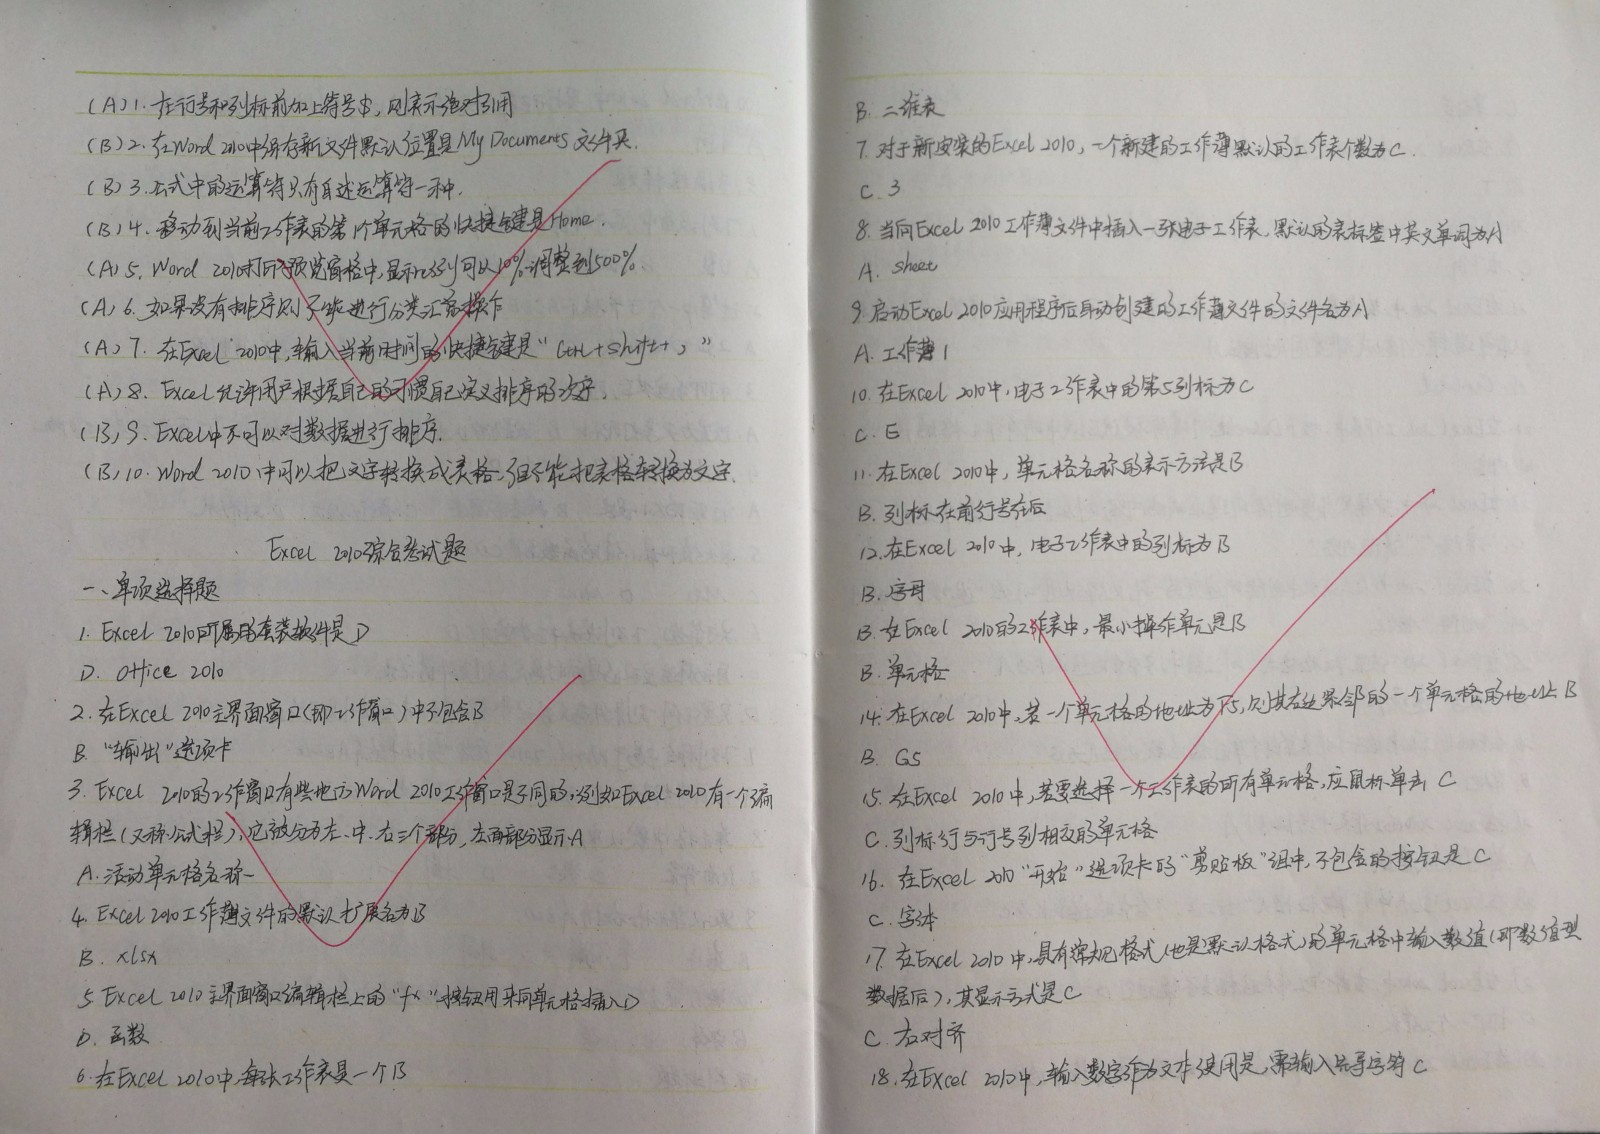 (A) 1. 在行号和列标前加上符号$,则表示绝对引用
(B) 2. 在Word 2010中保存新文件默认位置是My Documents 文件夹.
(B) 3. 公式中的运算符只有自述运算符一种.
(B) 4. 移动到当前工作表的第1个单元格的快捷键是Home.
(A) 5. Word 2010打印预览窗格中,显示比例可以10%调整到500%.
(A) 6. 如果没有排序则不能进行分类汇总操作
(A) 7. 在Excel 2010中,输入当前时间的快捷键是“Ctrl+Shift+;”
(A) 8. Excel允许用户根据自己的习惯自己定义排序的次序.
(B) 9. Excel中不可以对数据进行排序.
(B) 10. Word 2010中可以把文字转换成表格,但不能把表格转换为文字.
Excel 2010综合考试题
一、单项选择题
1. Excel 2010所属的套装软件是D
D. Office 2010
2. 在Excel 2010主界面窗口(即工作窗口)中不包含B
B. “输出”选项卡
3. Excel 2010的工作窗口有些地方Word 2010工作窗口是不同的,例如Excel 2010有一个编
辑栏(又称公式栏),它被分为左、中、右三个部分,左面部分显示A
A. 活动单元格名称
4. Excel 2010工作薄文件的默认扩展名为B
B. xlsx
5. Excel 2010主界面窗口编辑栏上的“fx”按钮用来向单元格插入D
D. 函数
6. 在Excel 2010中,每张工作表是一个B
B. 二维表
7. 对于新安装的Excel 2010,一个新建的工作薄默认的工作表个数为C.
C. 3
8. 当向Excel 2010工作薄文件中插入一张电子工作表,默认的表标签中英文单词为A
A. Sheet
9. 启动Excel 2010应用程序后自动创建的工作薄文件的文件名为A
A. 工作薄1
10. 在Excel 2010中,电子工作表中的第5列标为C
C. E
11. 在Excel 2010中,单元格名称的表示方法是B
B. 列标在前行号在后
12. 在Excel 2010中,电子工作表中的列标为B
B. 字母
13. 在Excel 2010的工作表中,最小操作单元是B
B. 单元格
14. 在Excel 2010中,若一个单元格的地址为F5,则其右边紧邻的一个单元格的地址B
B. G5
15. 在Excel 2010中,若要选择一个工作表的所有单元格,应鼠标单击 C
C. 列标行与行号列相交的单元格
16. 在Excel 2010“开始”选项卡的“剪贴板”组中,不包含的按钮是C
C. 字体
17. 在Excel 2010中,具有常规格式(也是默认格式)的单元格中输入数值(即数值型
数据后),其显示方式是C
C. 右对齐
18. 在Excel 2010中,输入数字作为文本使用是,需输入先导字符C